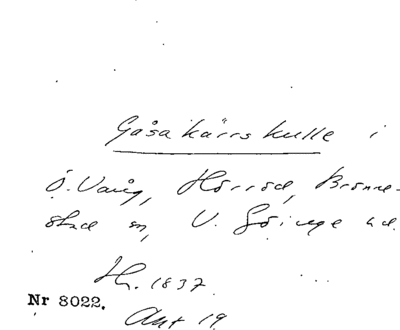 Gåsakärrskulle i
Ö. Vång, Hörröd, Brönne-
stad sn, V. Göinge hd.
H. 1837.
Nr 8022.
Akt 19